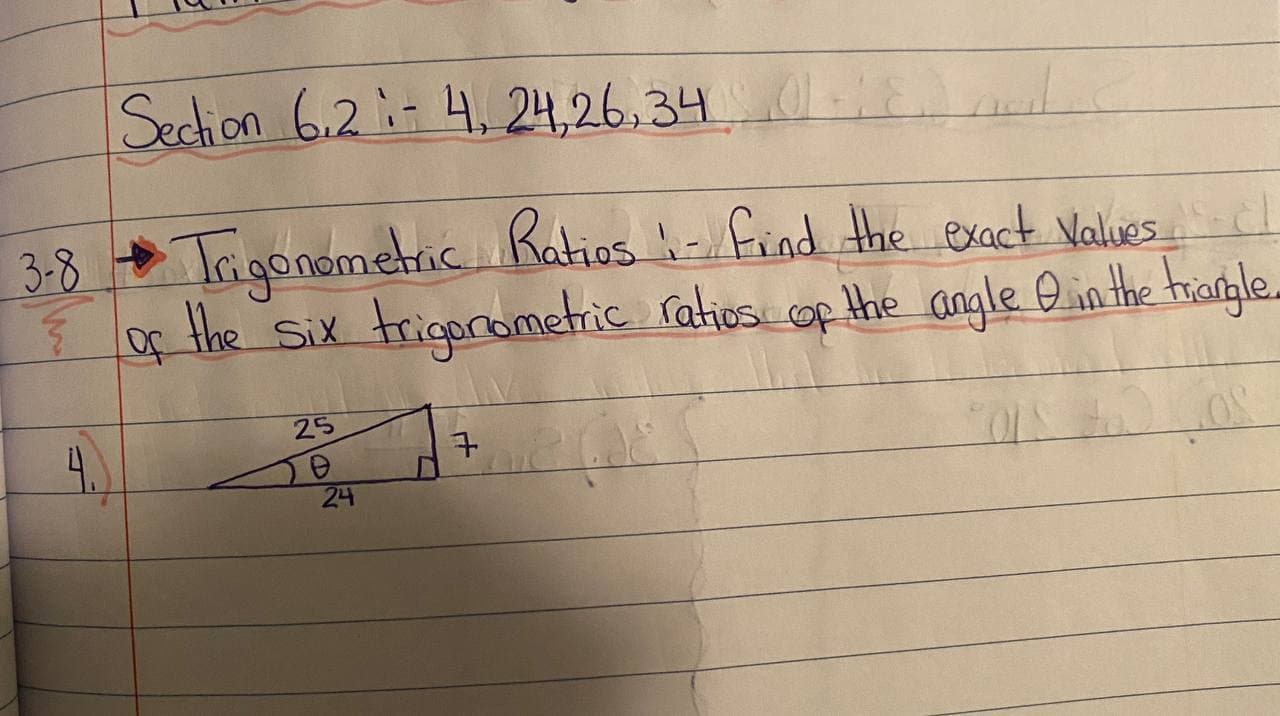 Section 6.2 :- 4, 24, 26, 34
3-8 → Trigonometric Ratios :- Find the exact values
of the six trigonometric ratios of the angle θ in the triangle.
4.)
25
7
θ
24